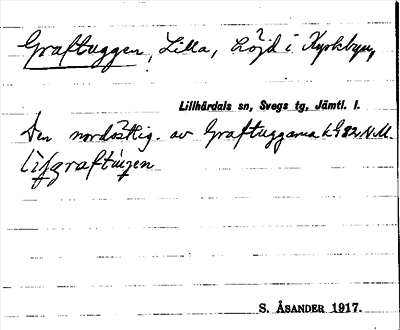 Graftuggen, Lilla, höjd i Kyrkbyn,
Lillhärdals sn, Svegs tg, Jämtl. l.
Den nordöstlig. av Graftuggarna
S. ÅSANDER 1917.